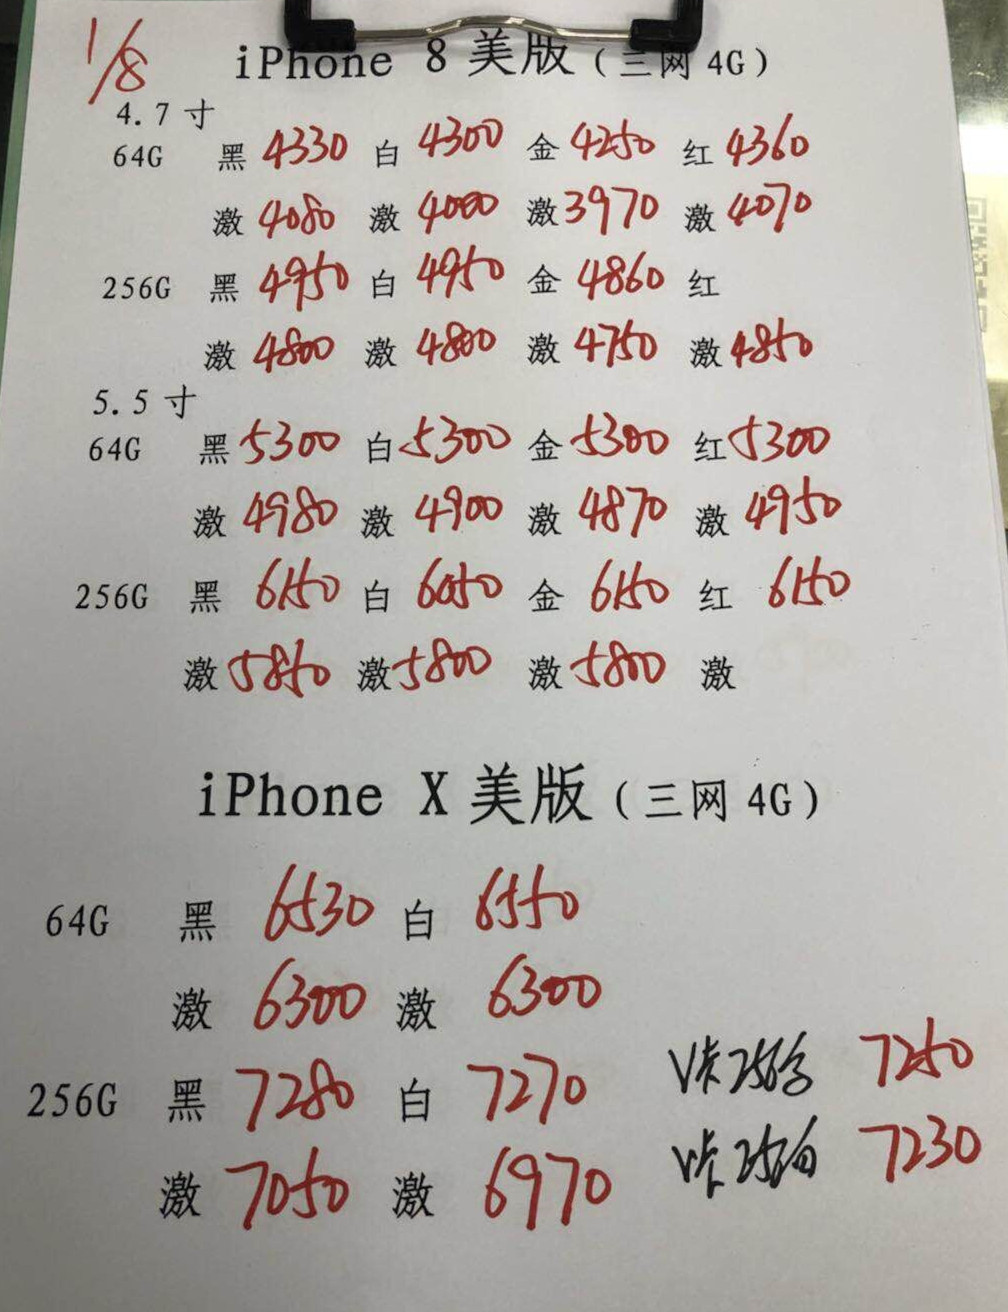 1/8
iPhone 8 美版（三网 4G）
4.7 寸
64G 黑 4330 白 4300 金 4250 红 4360
激 4080 激 4000 激 3970 激 4070
256G 黑 4950 白 4950 金 4860 红
激 4800 激 4800 激 4750 激 4850
5.5 寸
64G 黑 5300 白 5300 金 5300 红 5300
激 4980 激 4900 激 4870 激 4950
256G 黑 6150 白 6050 金 6150 红 6150
激 5850 激 5800 激 5800 激
iPhone X 美版（三网 4G）
64G 黑 6530 白 6550
激 6300 激 6300
256G 黑 7280 白 7270 V卡 256 7250
激 7050 激 6970 V卡 256白 7230